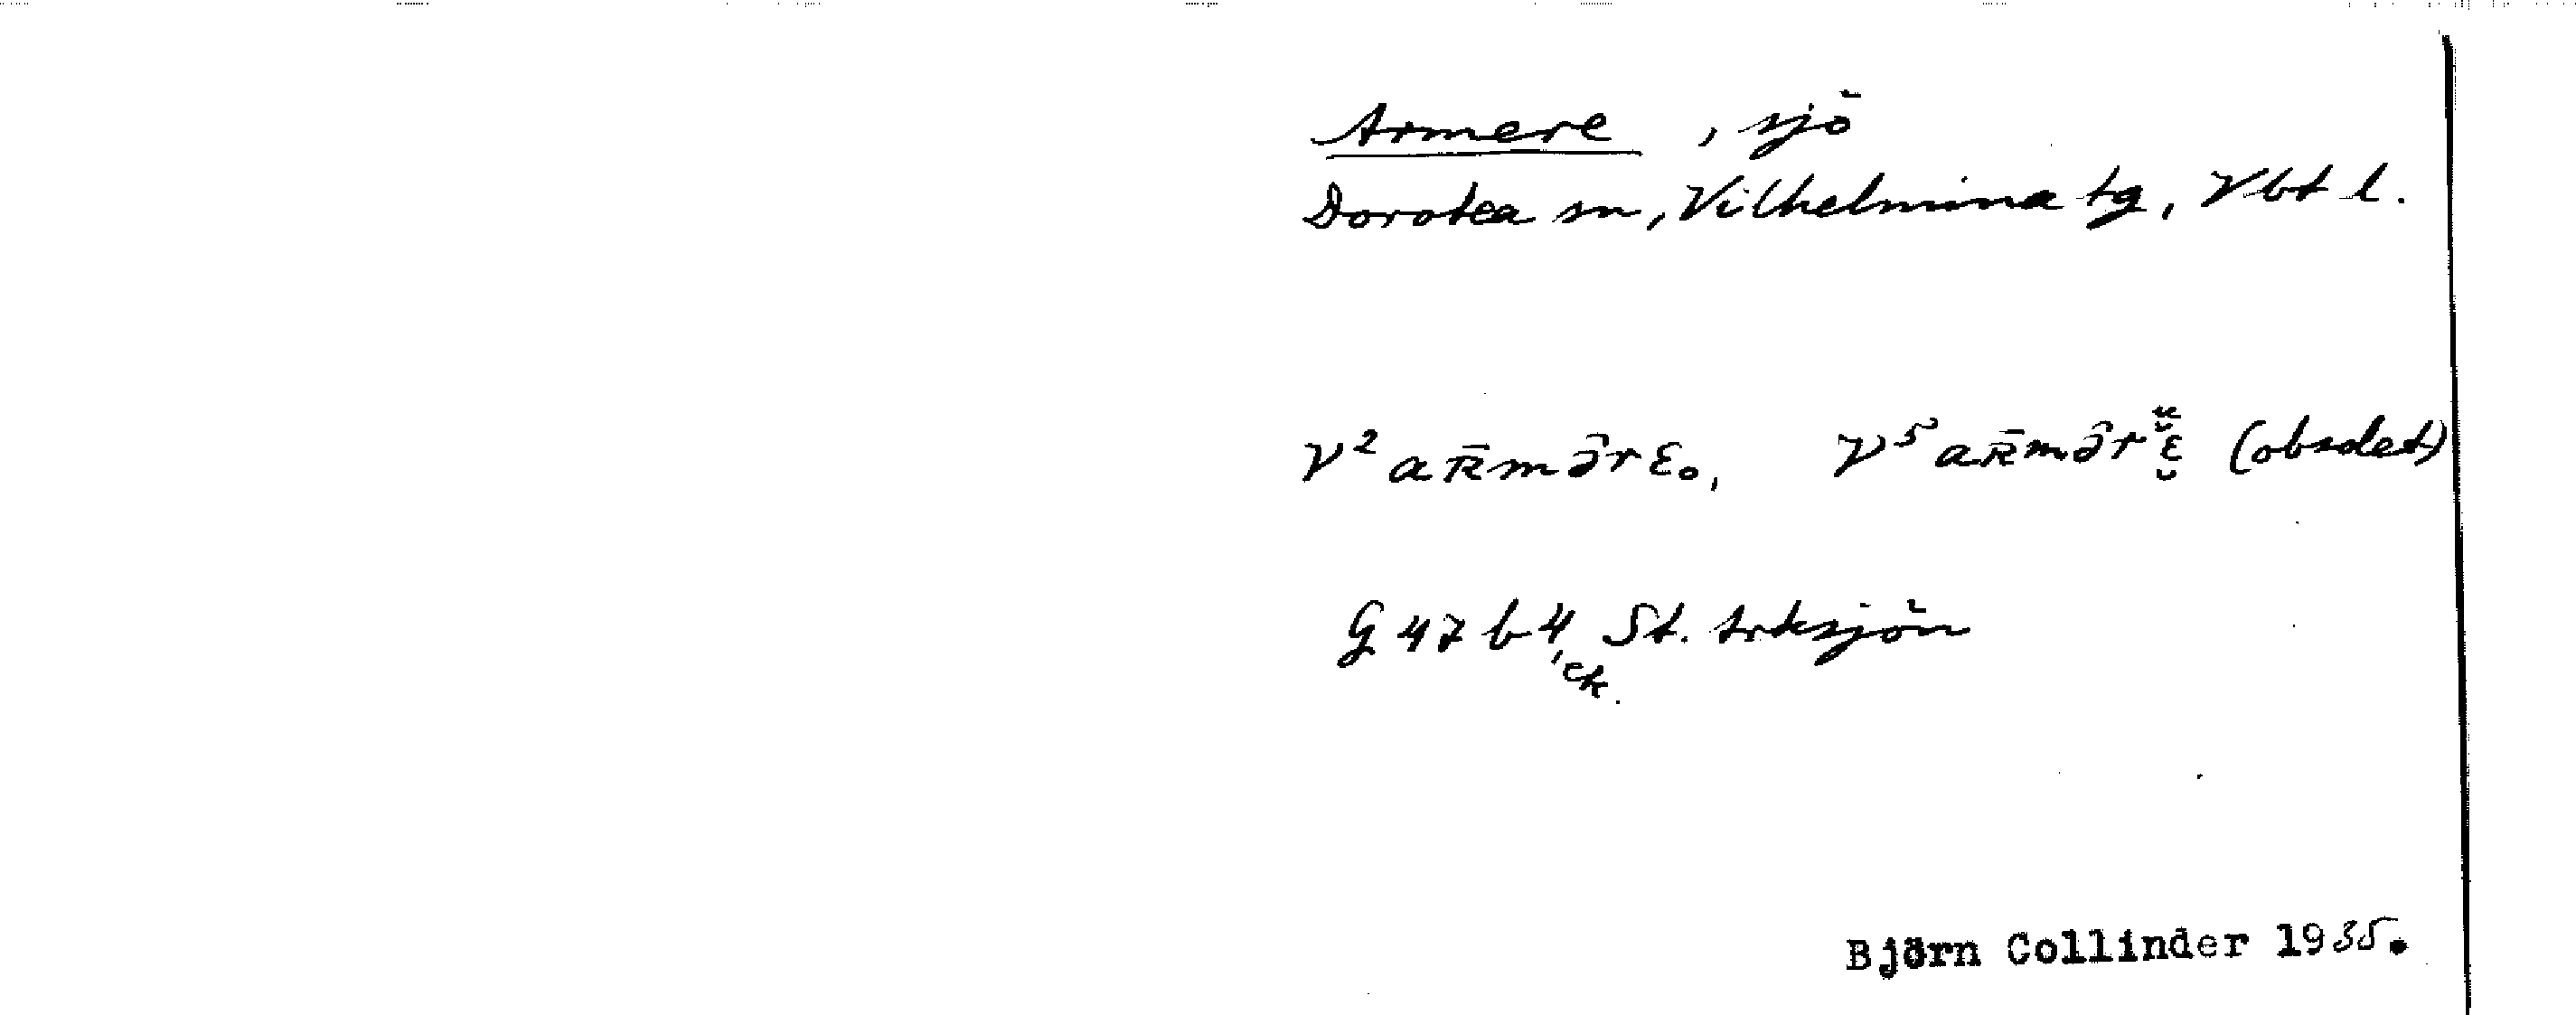 Armere , sjö
Dorotea sn, Vilhelmina tg, Vbt l.
V² aʀ̄mə̑rɛ₀, V⁵ aʀ̄mə̑rɛ̮̆ (obsolet)
G 47 b 4, ck. St. Arksjön
Björn Collinder 1935.